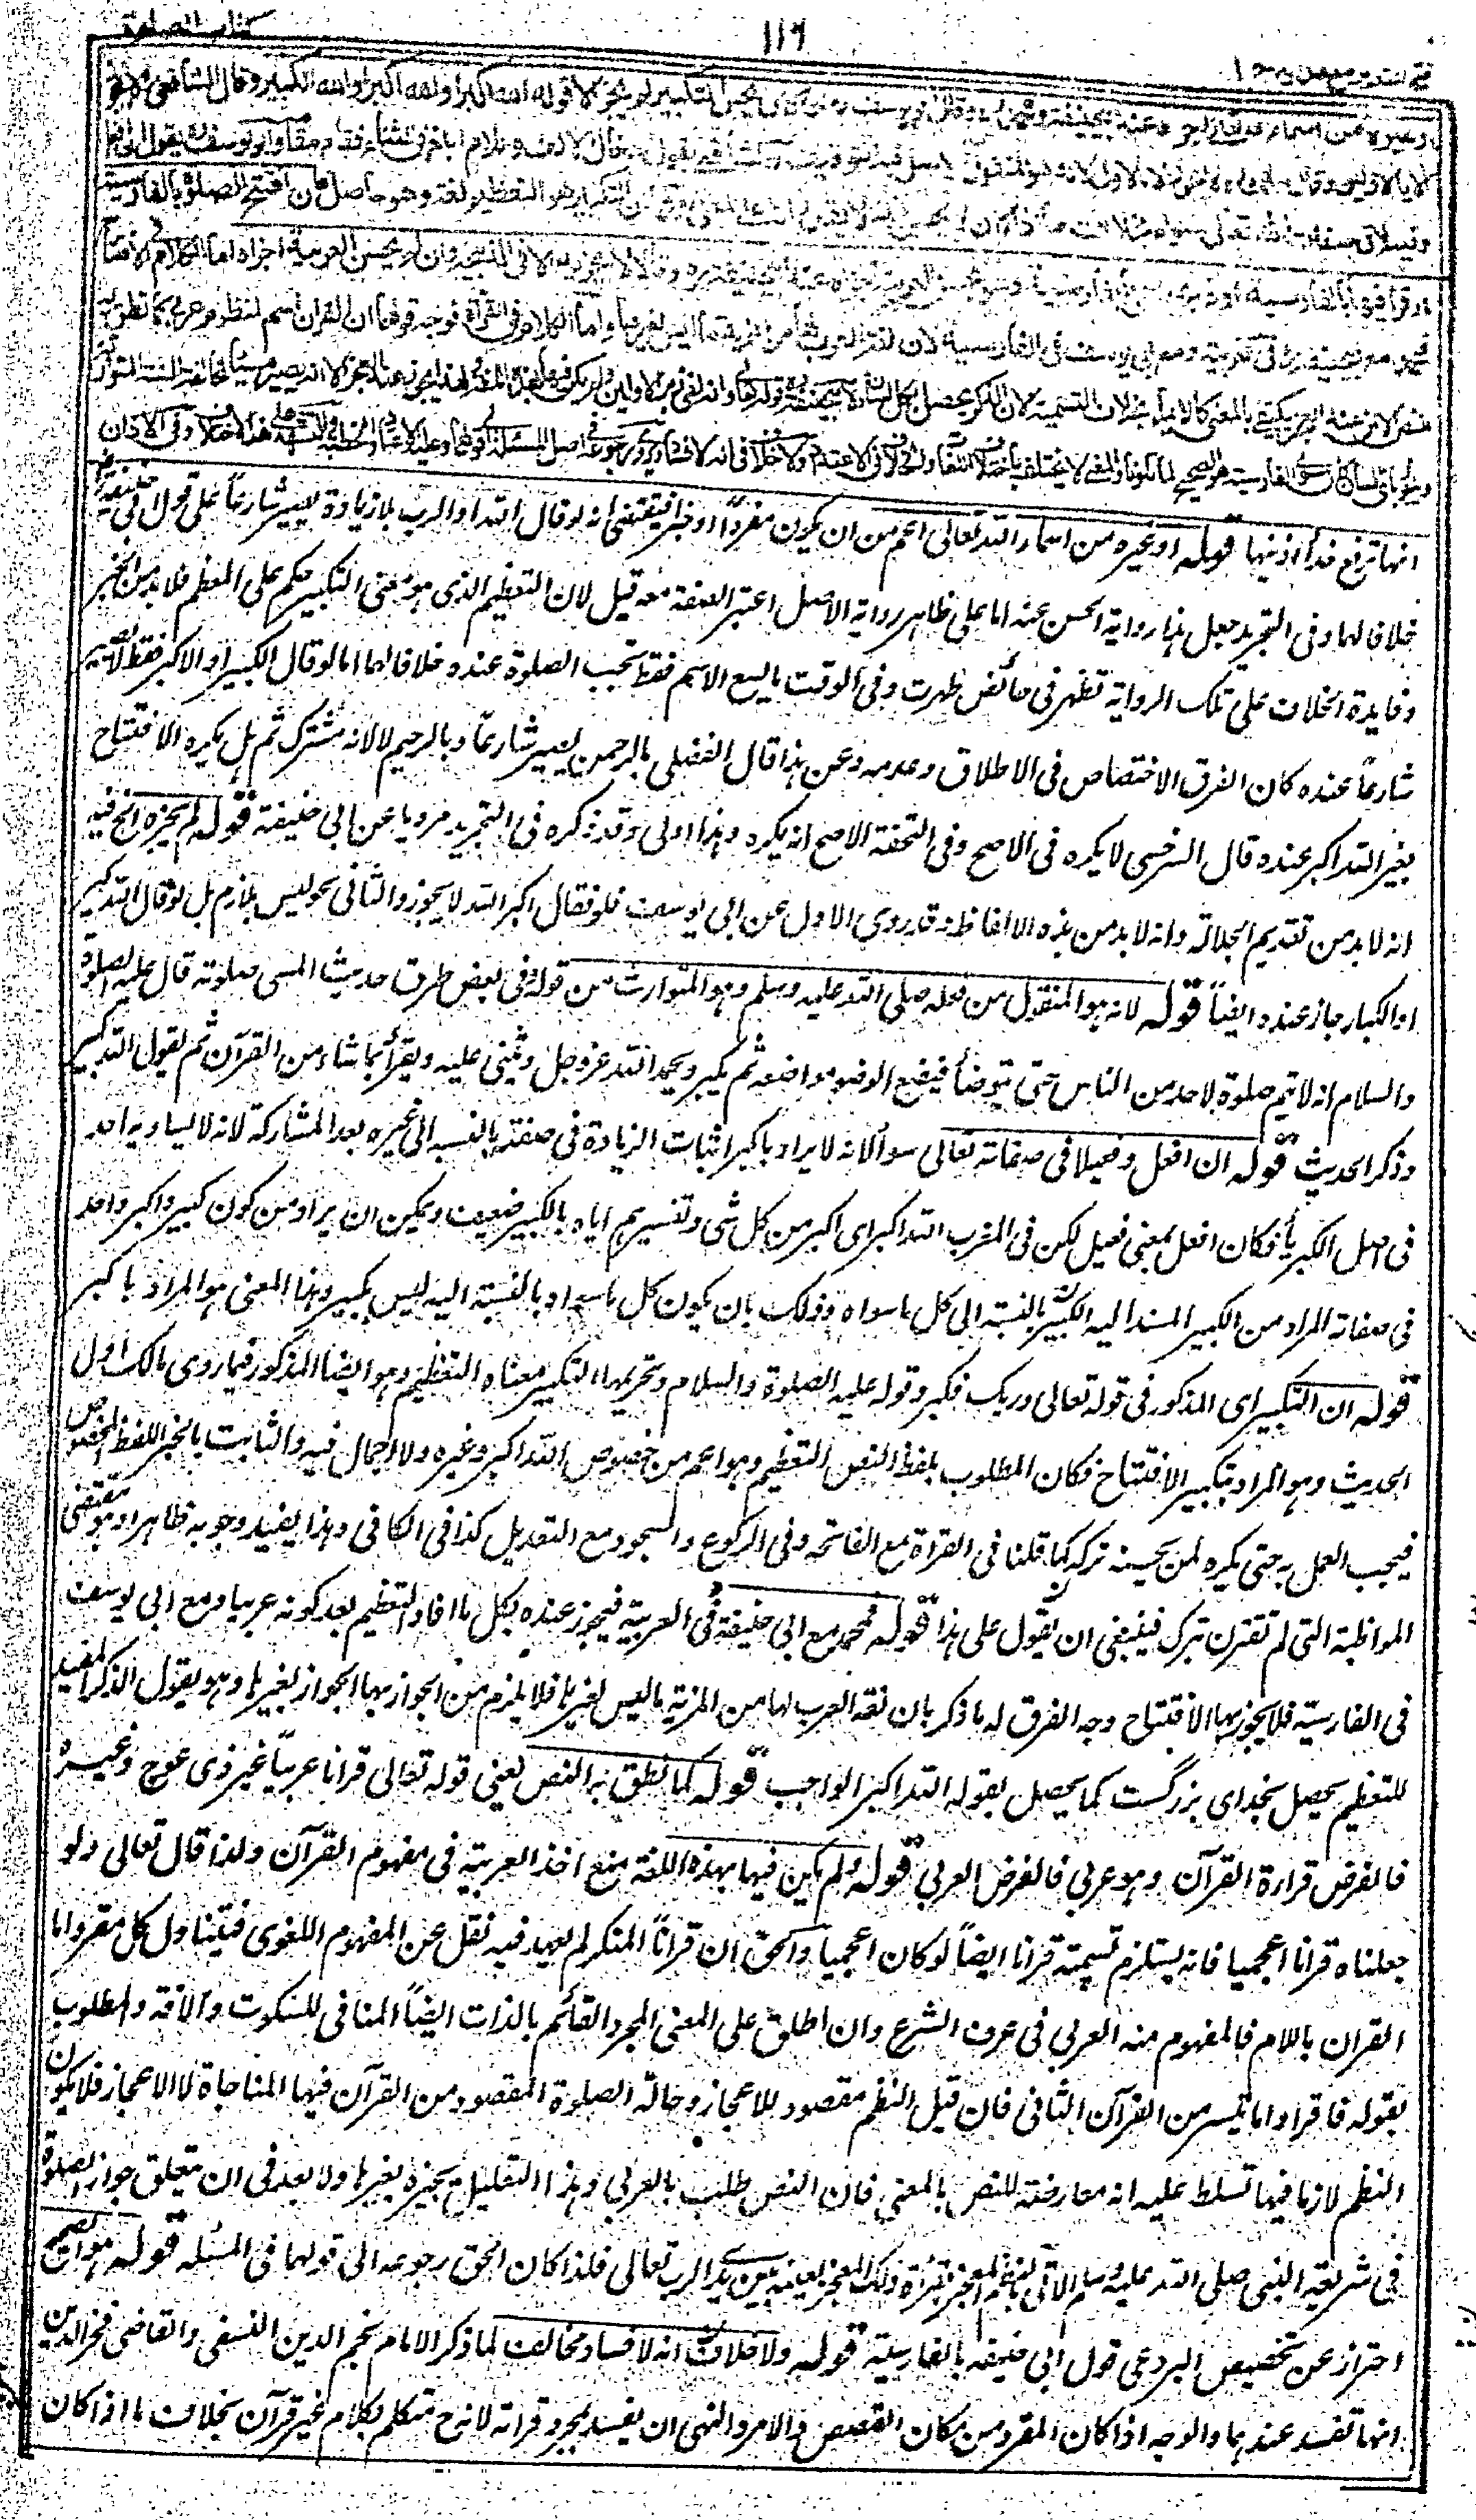 ١١٩
كتاب الصلوة
او غيره من اسماء الله تعالى اجزاه عند ابي حنيفة ومحمد وقال ابو يوسف ان كان يحسن التكبير لم يجز الا قوله الله اكبر او الله الاكبر او الله الكبير وقال الشافعي لا يجوز
الا بالاولين وقال مالك لا يجوز الا بالاول لانه هو المنقول والاصل فيه التوقيف والشافعي يقول ادخال الالف واللام ابلغ في الثناء فقام مقامه وابو يوسف يقول ان افعل
وفعيلا في صفات الله تعالى سواء بخلاف ما اذا كان لا يحسن لانه لا يقدر الا على المعنى ولهما ان التكبير هو التعظيم لغة وهو حاصل فان افتتح الصلوة بالفارسية
او قرأ فيها بالفارسية او ذبح وسمى بالفارسية وهو يحسن العربية اجزاه عند ابي حنيفة وقالا لا يجزيه الا في الذبيحة وان لم يحسن العربية اجزاه اما الكلام في الافتتاح
فمحمد مع ابي حنيفة في العربية ومع ابي يوسف في الفارسية لان لغة العرب لها من المزية ما ليس لغيرها واما الكلام في القرأة فوجه قولهما ان القران اسم لمنظوم عربي كما نطق به
النص الا ان عند العجز يكتفي بالمعنى كالايماء بخلاف التسمية لان الذكر يحصل بكل لسان
انها ترفع حذأ اذنيها قوله او غيره من اسماء الله تعالى اعم من ان يكون مفردًا او خبرا فيقتضي انه لو قال الله او الرب بلا زيادة يصير شارعًا على قول ابي حنيفة
خلافا لهما وفي التجريد جعل هذا رواية الحسن عنه اما على ظاهر رواية الاصل اعتبر الصفة معه قيل لان التعظيم الذي هو معنى التكبير حكم على المعظم فلا بد من الخبر
وفايدة الخلاف على تلك الرواية تظهر في حائض طهرت وفي الوقت ما يسع الاسم فقط تجب الصلوة عنده خلافا لهما اما لو قال الكبير او الاكبر فقط لا يصير
شارعًا عنده كان الفرق الاختصاص في الاطلاق وعدمه وعن هذا قال الفضلي بالرحمن يصير شارعًا وبالرحيم لا لانه مشترك ثم هل يكره الافتتاح
بغير الله اكبر عنده قال السرخسي لا يكره في الاصح وفي التحفة الاصح انه يكره وهذا اولى وقد ذكره في التجريد مرويا عن ابي حنيفة قوله لم يجزه الخ فيه
انه لا بد من تقديم الجلالة وانه لا بد من هذه الالفاظ نه قد روي الاول عن ابي يوسف فلو قال اكبر الله لا يجوز والثاني نحو ليس بلازم بل لو قال الله كبير
او الكبار جاز عنده ايضًا قوله لانه هو المنقول من فعله صلى الله عليه وسلم وهو المتوارث من قوله وفي بعض طرق حديث المسى صلوته قال عليه الصلوة
والسلام انه لا تتم صلوة لاحد من الناس حتى يتوضأ فيضع الوضوء مواضعه ثم يكبر ويحمد الله عز وجل ويثني عليه ويقرأ بما شاء من القرآن ثم يقول الله اكبر
وذكر الحديث قوله ان افعل وفعيلا في صفاته تعالى سوأ لانه لا يراد باكبر اثبات الزيادة في صفته بالنسبة الى غيره بعد المشاركة لانه لا يساويه احد
في اصل الكبريأ فكان افعل بمعنى فعيل لكن في المغرب الله اكبر اى اكبر من كل شى وتفسيرهم اياه بالكبير ضعيف ويمكن ان يراد من كون كبير واكبر واحد
في صفاته المراد من الكبير المسند اليه الكبير بالنسبة الى كل ما سواه وذلك بان يكون كل ما سواه بالنسبة اليه ليس بكبير وهذا المعنى هو المراد باكبر
قوله ان التكبير اى المذكور في قوله تعالى وربك فكبر وقوله عليه الصلوة والسلام وتحريمها التكبير معناه التعظيم وهو ايضا المذكور فيما روى مالك اول
الحديث وهو المراد بتكبير الافتتاح فكان المطلوب بلفظ النص التعظيم وهو اعم من خصوص الله اكبر وغيره ولا اجمال فيه والثابت بالخبر اللفظ المخصوص
فيجب العمل به حتى يكره لمن يحسنه تركه كما قلنا في القرأة مع الفاتحة وفي الركوع والسجود مع التعديل كذا في الكافي وهذا يفيد وجوبه ظاهرا وهو مقتضى
المواظبة التي لم تقترن بترك فينبغي ان يقول على هذا قوله فمحمد مع ابي حنيفة في العربية فيجوز عنده بكل ما افاد التعظيم بعد كونه عربيا ومع ابي يوسف
في الفارسية فلا يجوز بها الافتتاح وجه الفرق له ما ذكر بان لغة العرب لها من المزية ما ليس لغيرها فلا يلزم من الجواز بها الجواز بغيرها وهو يقول الذكر المفيد
للتعظيم يحصل بخداى بزرگست كما يحصل بقوله الله اكبر الواجب قوله كما نطق به النص يعني قوله تعالى قرانا عربيًّا غير ذى عوج وغيره
فالفرض قراءة القرآن وهو عربي فالفرض العربي قوله ولم يكن فيها بهذه اللغة منع اخذ العربية في مفهوم القرآن ولذا قال تعالى ولو
جعلناه قرانا اعجميا فانه يستلزم تسميته قرانا ايضًا لو كان اعجميا والحق ان قرانًا المنكر لم يعهد فيه نقل عن المفهوم اللغوى فيتناول كل مقرو اما
القران باللام فالمفهوم منه العربي في عرف الشرع وان اطلق على المعنى المجرد القائم بالذات ايضًا المنافي للسكوت والآفة والمطلوب
بقوله فاقراوا ما تيسر من القرآن الثاني فان قيل النظم مقصود للاعجاز وحالة الصلوة المقصود من القرآن فيها المناجاة لا الاعجاز فلا يكون
النظم لازما فيها تسلط عليه انه معارضة للنص بالمعنى فان النص طلب بالعربي وهذا التعليل يجيزه بغيرها ولا بعد في ان يتعلق جواز الصلوة
في شريعة النبي صلى الله عليه وسلم الآتي بالنظم المعجز بقرأة ذلك المعجز بعينه بين يدى الرب تعالى فلذا كان الحق رجوعه الى قولهما في المسئلة قوله هو الصحيح
احتراز عن تخصيص البردعي قول ابي حنيفة بالفارسية قوله ولا خلاف انه لا فساد مخالف لما ذكر الامام نجم الدين النسفي والقاضي فخر الدين
انها تفسد عندهما والوجه اذا كان المقرو من مكان القصص والامر والنهى ان يفسد بمجرد قراته لانه ح متكلم بكلام غير قرآن بخلاف ما اذا كان